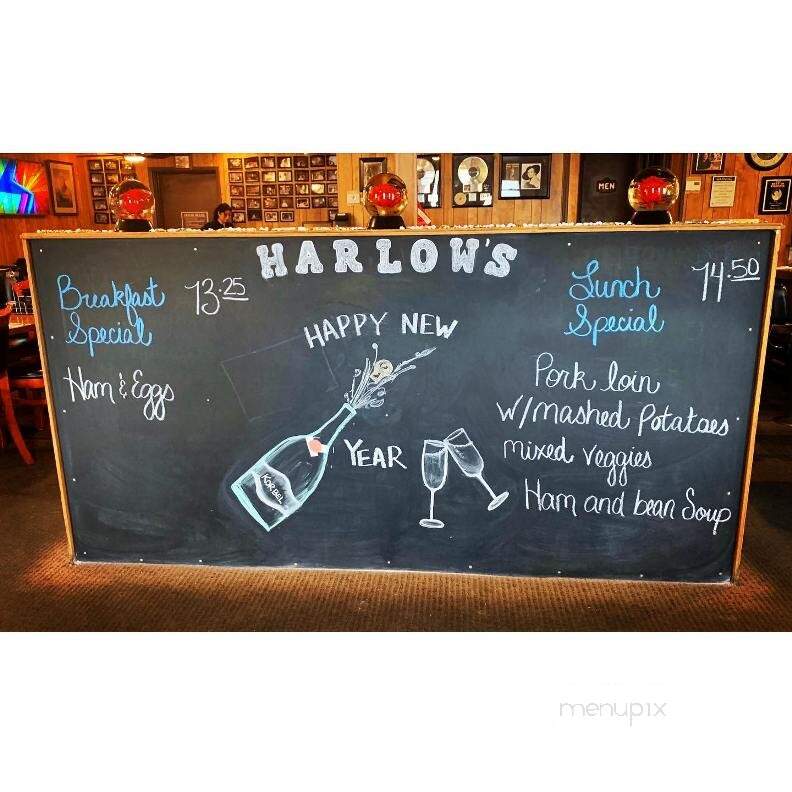 MEN
HARLOW'S
Breakfast
Special
13.25
Ham & Eggs
HAPPY NEW
YEAR
KORBEL
Lunch
Special
14.50
Pork loin
w/mashed Potatoes
mixed veggies
Ham and bean Soup
menupix